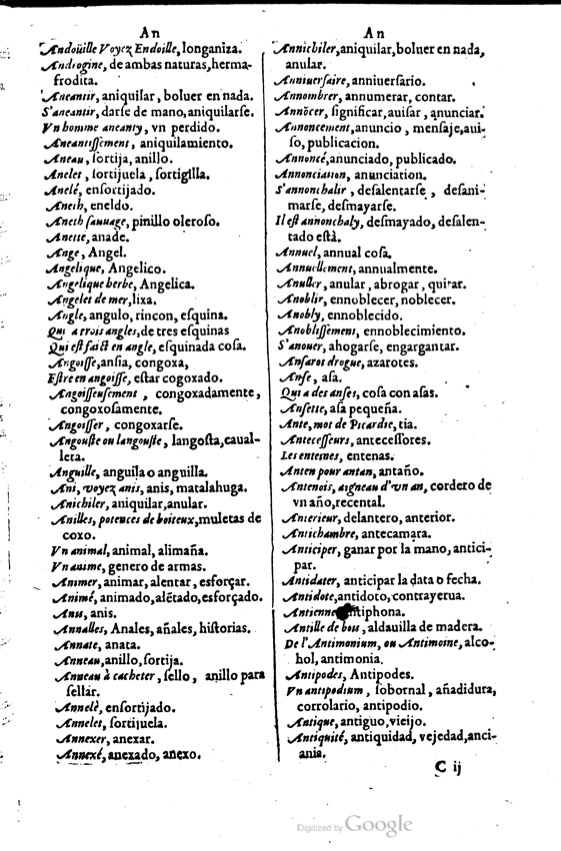 An
Andoüille Voyez Endoille, longaniza.
Androgine, de ambas naturas, herma-
frodita.
Aneantir, aniquilar, boluer en nada.
S'aneantir, darſe de mano, aniquilarſe.
Vn homme aneanty, vn perdido.
Aneantiſſement, aniquilamiento.
Aneau, ſortija, anillo.
Anelet, ſortijuela, ſortigilla.
Anelé, enſortijado.
Aneth, eneldo.
Aneth ſauuage, pinillo oleroſo.
Anette, anade.
Ange, Angel.
Angelique, Angelico.
Angelique herbe, Angelica.
Angelet de mer, lixa.
Angle, angulo, rincon, eſquina.
Qui a trois angles, de tres eſquinas
Qui eſt faict en angle, eſquinada coſa.
Angoiſſe, anſia, congoxa,
Eſtre en angoiſſe, eſtar cogoxado.
Angoiſſeuſement, congoxadamente,
congoxoſamente.
Angoiſſer, congoxarſe.
Angouſte ou langouſte, langoſta, caual-
leta.
Anguille, anguila o anguilla.
Ani, voyez anis, anis, matalahuga.
Anichiler, aniquilar, anular.
Anilles, potences de boiteux, muletas de
coxo.
Vn animal, animal, alimaña.
Vn anime, genero de armas.
Animer, animar, alentar, esforçar.
Animé, animado, alẽtado, esforçado.
Anus, anis.
Annalles, Anales, añales, hiſtorias.
Annate, anata.
Anneau, anillo, ſortija.
Anneau à cacheter, ſello, anillo para
ſellar.
Annelè, enſortijado.
Annelet, ſortijuela.
Annexer, anexar.
Annexé, anexado, anexo.
An
Annichiler, aniquilar, boluer en nada,
anular.
Anniuerſaire, anniuerſario.
Annombrer, annumerar, contar.
Annõcer, ſignificar, auiſar, anunciar.
Annoncement, anuncio, menſaje, aui-
ſo, publicacion.
Annoncé, anunciado, publicado.
Annonciation, anunciation.
S'annonchalir, deſalentarſe, deſani-
marſe, deſmayarſe.
Il eſt annonchaly, deſmayado, deſalen-
tado eſtà.
Annuel, annual coſa.
Annuellement, annualmente.
Anuller, anular, abrogar, quitar.
Anoblir, ennoblecer, noblecer.
Anobly, ennoblecido.
Anobliſſement, ennoblecimiento.
S'anouer, ahogarſe, engargantar.
Anſaros drogue, azarotes.
Anſe, aſa.
Qui a des anſes, coſa con aſas.
Anſette, aſa pequeña.
Ante, mot de Picardie, tia.
Anteceſſeurs, anteceſſores.
Les entemes, entenas.
Anten pour antan, antaño.
Antenois, aigneau d'vn an, cordero de
vn año, recental.
Anterieur, delantero, anterior.
Antichambre, antecamara.
Anticiper, ganar por la mano, antici-
par.
Antidater, anticipar la data o fecha.
Antidote, antidoto, contrayerua.
Antienne, antiphona.
Antille de bois, aldauilla de madera.
De l'Antimonium, ou Antimoine, alco-
hol, antimonia.
Antipodes, Antipodes.
Vn antipodium, ſobornal, añadidura,
corrolario, antipodio.
Antique, antiguo, vieijo.
Antiquité, antiquidad, vejedad, anci-
ania.
C ij
Digitized by Google